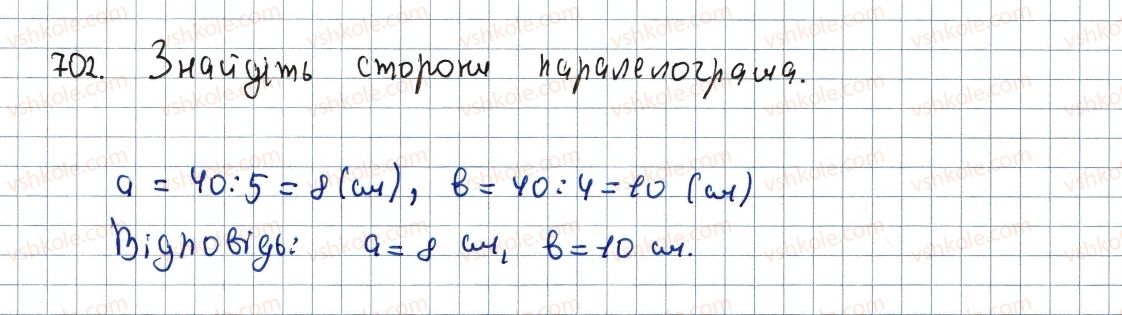 702. Знайдіть сторони паралелограма.
a = 40:5 = 8 (см), b = 40:4 = 10 (см)
Відповідь: a = 8 см, b = 10 см.